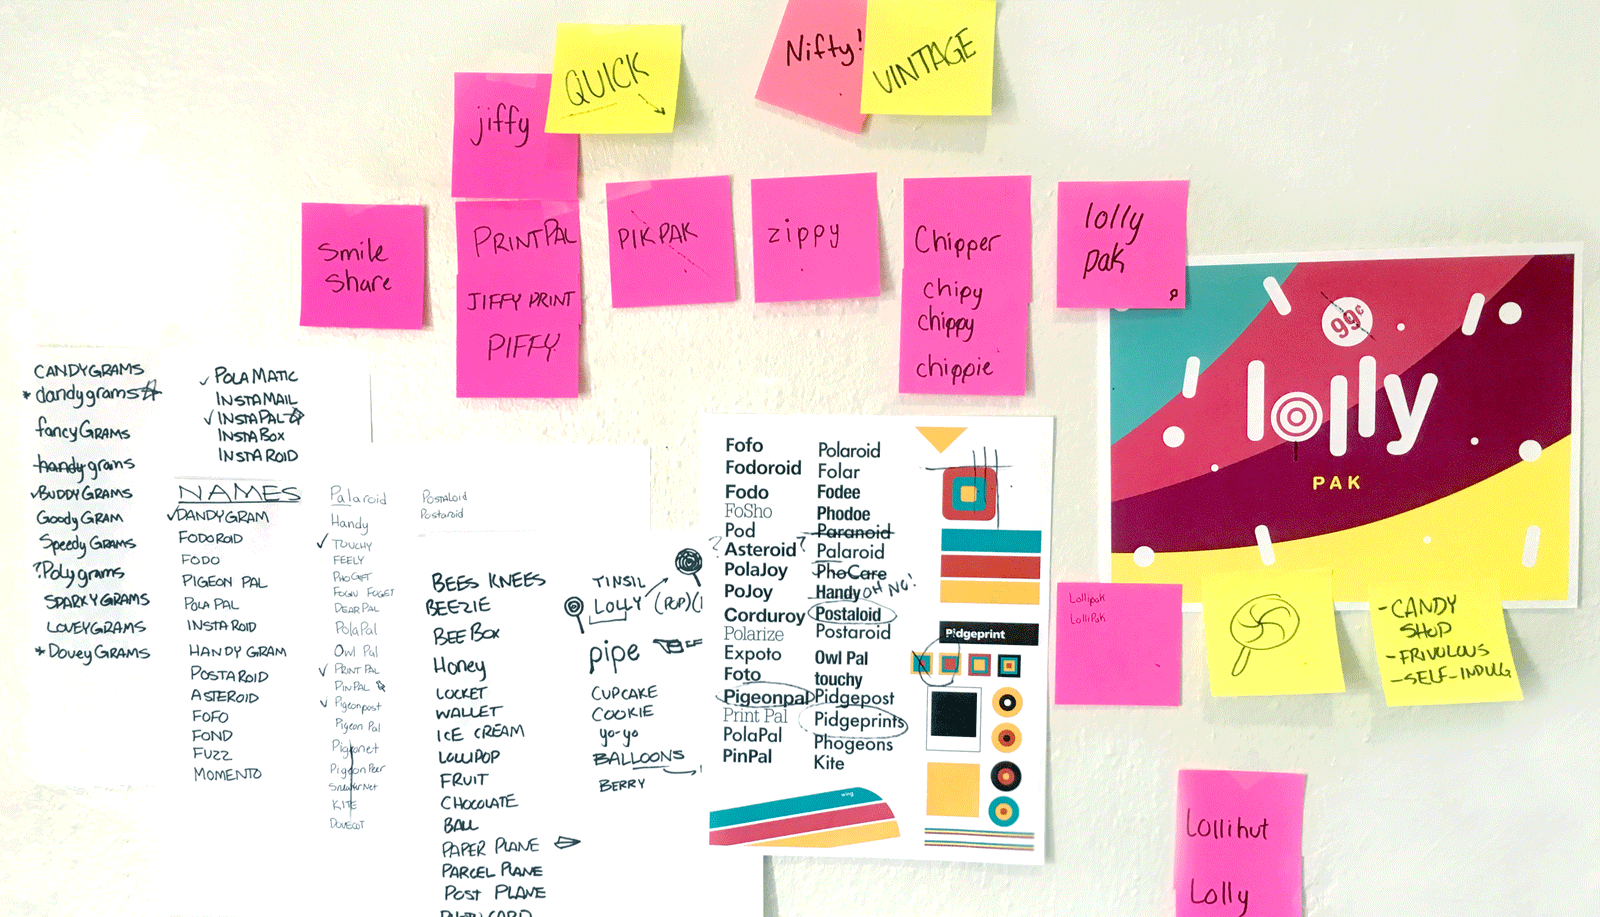 Nifty!
VINTAGE
QUICK
jiffy
smile
share
PRINTPAL
JIFFY PRINT
PIFFY
PIKPAK
zippy
Chipper
chipy
chippy
chippie
lolly
pak
99¢
lolly
PAK
CANDYGRAMS
dandygrams
fancyGRAMS
handygrams
BUDDYGRAMS
GoodyGRAM
SpeedyGRAMS
?Polygrams
SPARKYGRAMS
LOVEYGRAMS
*DoveyGRAMS
POLAMATIC
INSTAMAIL
INSTAPAL
INSTABOX
INSTAROID
NAMES
DANDYGRAM
FODOROID
FODO
PIGEON PAL
POLA PAL
INSTAROID
HANDY GRAM
POSTAROID
ASTEROID
FOFO
FOND
FUZZ
MOMENTO
Palaroid
Handy
TOUCHY
FEELY
PHOGET
DEARPAL
PolaPal
Owl Pal
PRINT PAL
PINPAL
Pigeonpost
Pigeon Pal
Pigeonet
PigeonPeer
SneakerNet
KITE
DOVECOT
Postaloid
Postaroid
BEES KNEES
BEEZIE
BEEBOX
Honey
LOCKET
WALLET
ICE CREAM
LOLLIPOP
FRUIT
CHOCOLATE
BALL
PAPER PLANE
PARCEL PLANE
POST PLANE
TINSIL
LOLLY
(POP)
pipe
CUPCAKE
COOKIE
yo-yo
BALLOONS
BERRY
Fofo
Fodoroid
Fodo
FoSho
Pod
?
Asteroid
?
PolaJoy
PoJoy
Corduroy
Polarize
Expoto
Foto
Pigeonpal
Print Pal
PolaPal
PinPal
Polaroid
Folar
Fodee
Phodoe
Paranoid
Palaroid
PhoCare
Handy OH NO!
Postaloid
Postaroid
Owl Pal
touchy
Pidgepost
Pidgeprints
Phogeons
Kite
Pidgeprint
wing
Lollipak
LolliPak
-CANDY
SHOP
-FRIVULOUS
-SELF-INDULG
Lollihut
Lolly